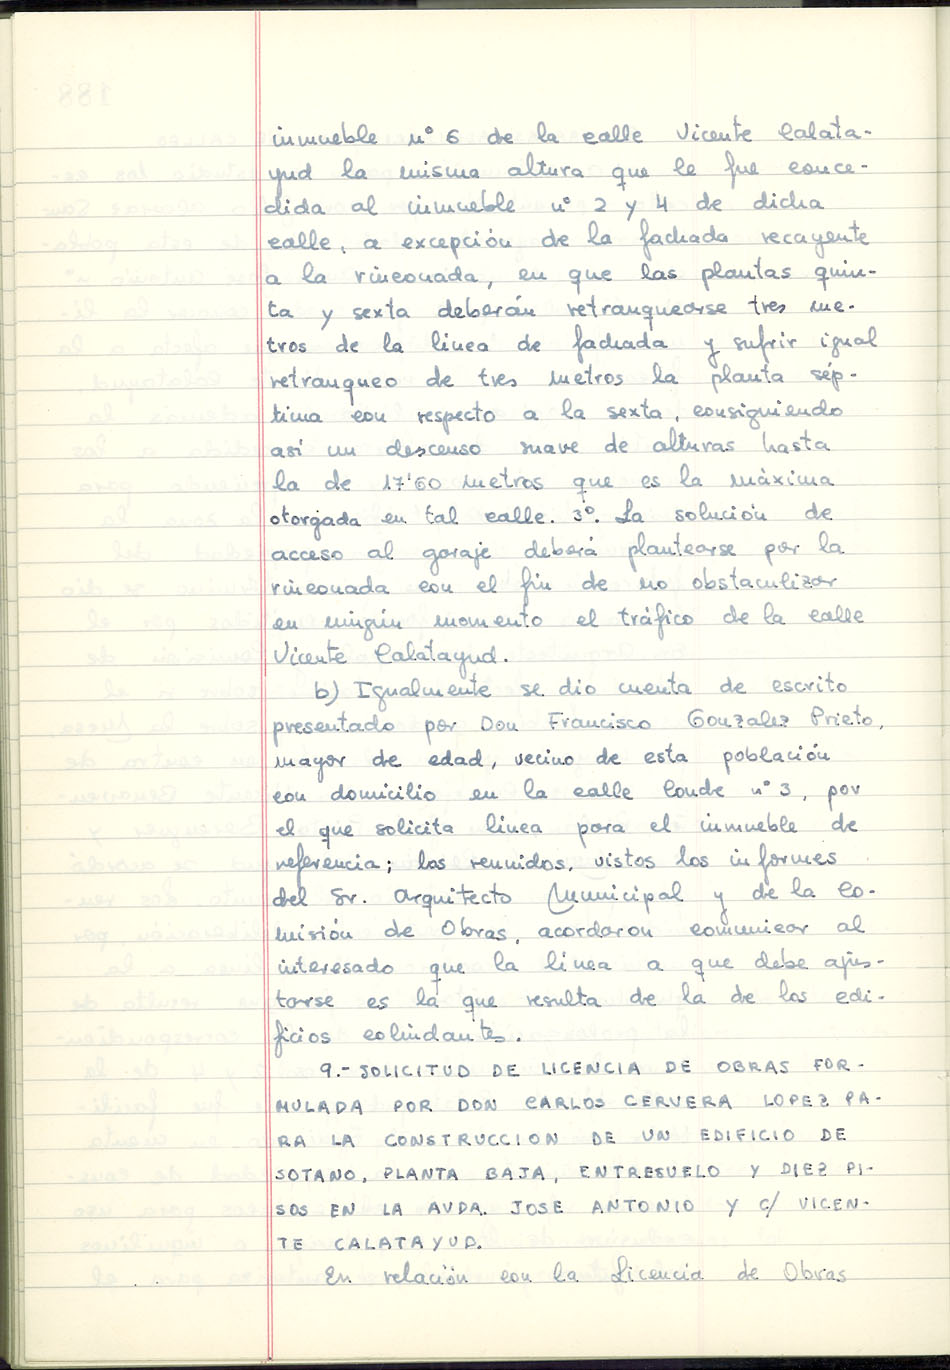 inmueble nº 6 de la calle Vicente Calata-
yud la misma altura que le fue conce-
dida al inmueble nº 2 y 4 de dicha
calle, a excepción de la fachada recayente
a la rinconada, en que las plantas quin-
ta y sexta deberán retranquearse tres me-
tros de la linea de fachada y sufrir igual
retranqueo de tres metros la planta sép-
tima con respecto a la sexta, consiguiendo
así un descenso suave de alturas hasta
la de 17'60 metros que es la máxima
otorgada en tal calle. 3º. La solución de
acceso al garaje deberá plantearse por la
rinconada con el fin de no obstaculizar
en ningún momento el tráfico de la calle
Vicente Calatayud.
b) Igualmente se dio cuenta de escrito
presentado por Don Francisco Gonzalez Prieto,
mayor de edad, vecino de esta población
con domicilio en la calle Conde nº 3, por
el que solicita linea para el inmueble de
referencia; los reunidos, vistos los informes
del Sr. Arquitecto Municipal y de la Co-
misión de Obras, acordaron comunicar al
interesado que la linea a que debe ajus-
tarse es la que resulta de la de los edi-
ficios colindantes.
9.- SOLICITUD DE LICENCIA DE OBRAS FOR-
MULADA POR DON CARLOS CERVERA LOPEZ PA-
RA LA CONSTRUCCION DE UN EDIFICIO DE
SOTANO, PLANTA BAJA, ENTRESUELO Y DIEZ PI-
SOS EN LA AVDA. JOSE ANTONIO Y C/ VICEN-
TE CALATAYUD.
En relación con la Licencia de Obras